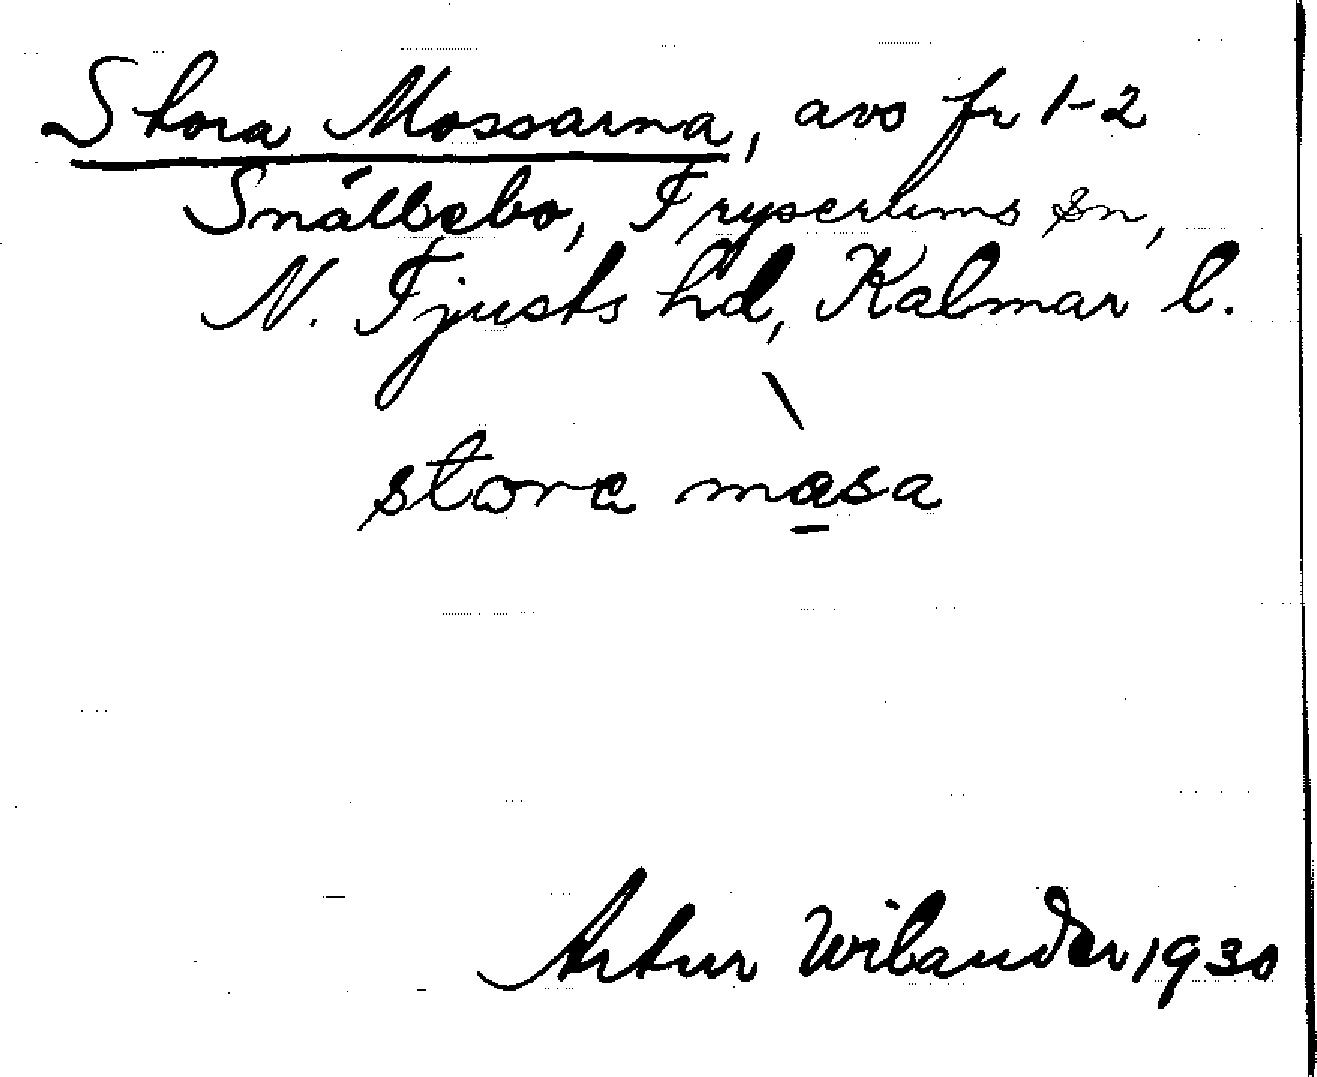 Stora Mossarna, avs fr 1-2
Smällbebo, Tryserums sn,
N. Tjusts hd, Kalmar l.
\
stora mɑsa
Artur Wilander 1930